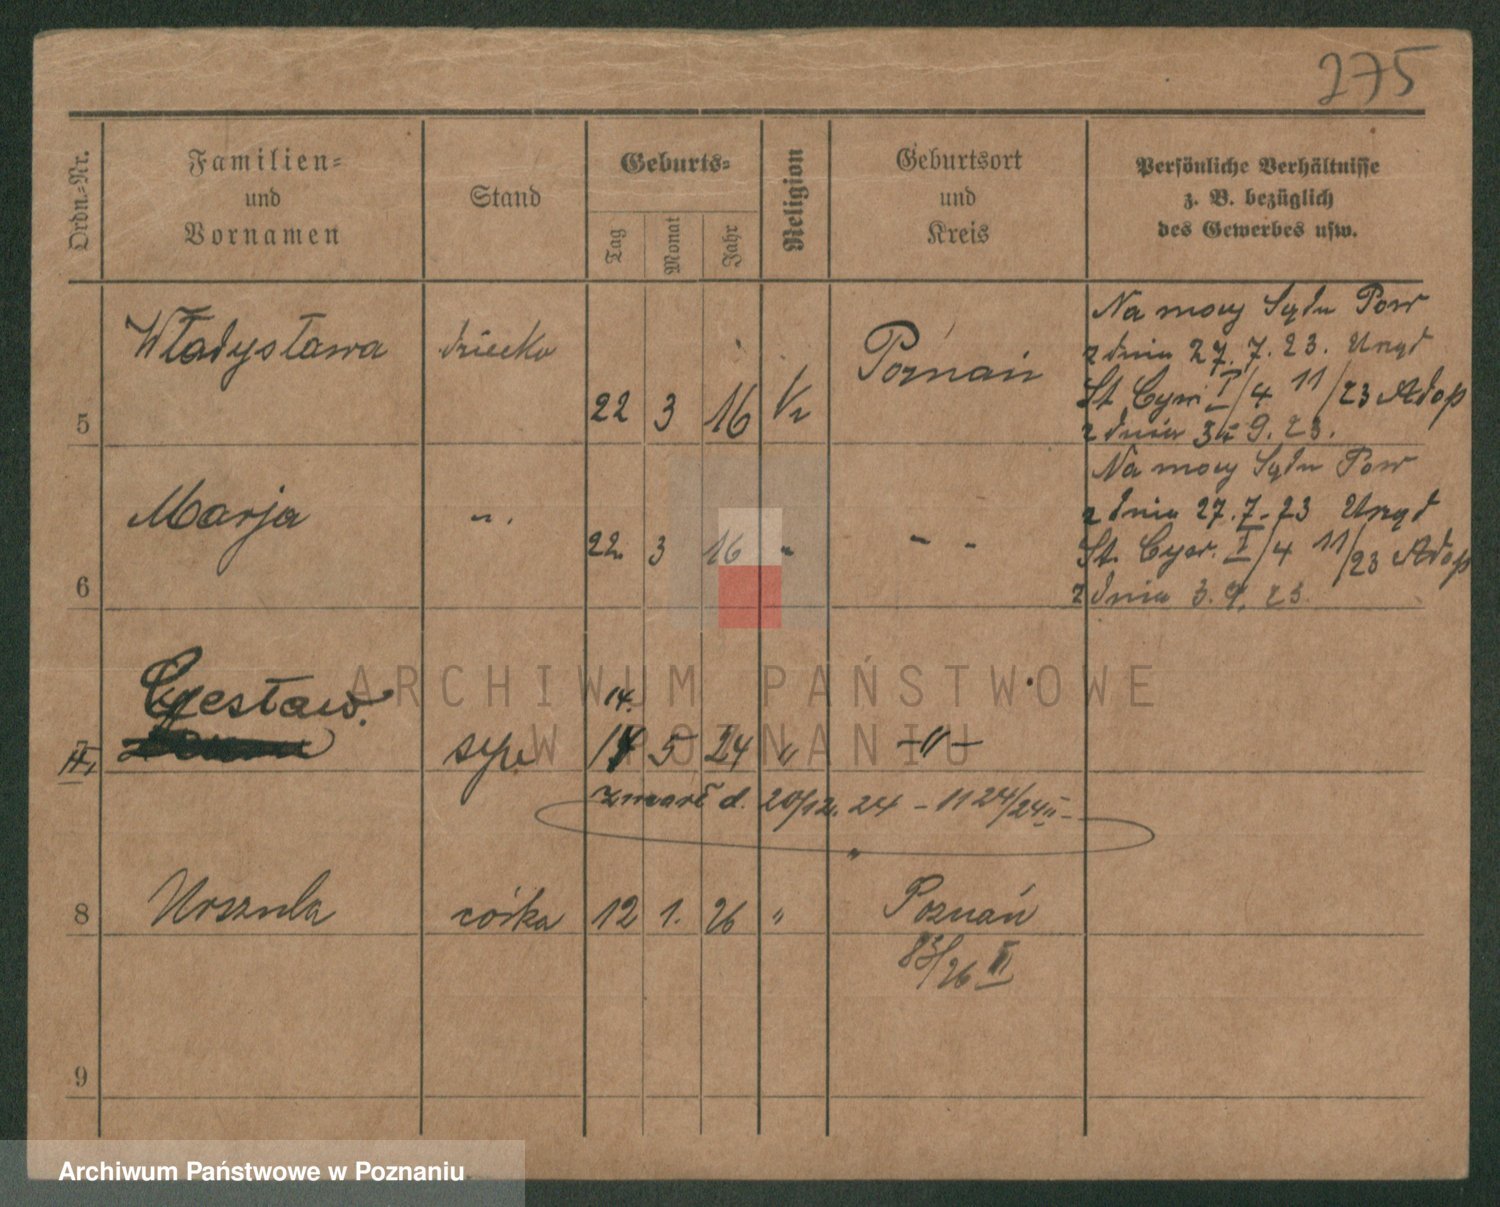 275
Ordn.-Nr.
Familien-
und
Vornamen
Stand
Geburts-
Tag
Monat
Jahr
Religion
Geburtsort
und
Kreis
Persönliche Verhältnisse
z. B. bezüglich
des Gewerbes usw.
5 Władysława dziecko 22 3 16 Poznań
Na mocy Sądu Pow
z dnia 27. 7. 23. Urząd
St. Cyw. I/4 11/23 Adop
z dnia 3. 9. 23.
6 Marja " 22. 3 16 " "
Na mocy Sądu Pow
z dnia 27. 7. 23 Urząd
St. Cyw. I/4 11/23 Adop
z dnia 3. 9. 23.
Czesław.
14.
7 syn 5 24 " -"-
zmarł d. 20/12. 24 - 1124/24 II
8 Urszula córka 12 1. 26 " Poznań
83/26 II
9
ARCHIWUM PAŃSTWOWE
W POZNANIU
Archiwum Państwowe w Poznaniu